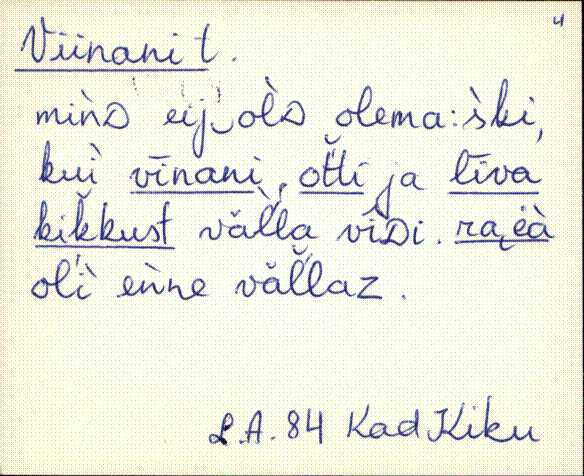 4
Viinani t.
mìnᴅ eij‿òlᴅ olema:ški,
kuì vīnani, ot̆ti ja līva
kik̆kust văl̀la vīᴅi. ra̮ɛ̈à
oĺì eǹne văl̆laz.
L.A. 84 Kad Kiku